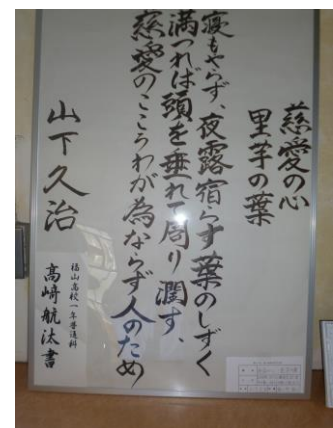 慈愛の心
里芋の葉
寝もやらず、夜露宿らす葉のしずく
満つれば頭を垂れて周り潤す、
慈愛のこころわが為ならず人のため
山下久治
福山高校一年普通科
高崎航汰書